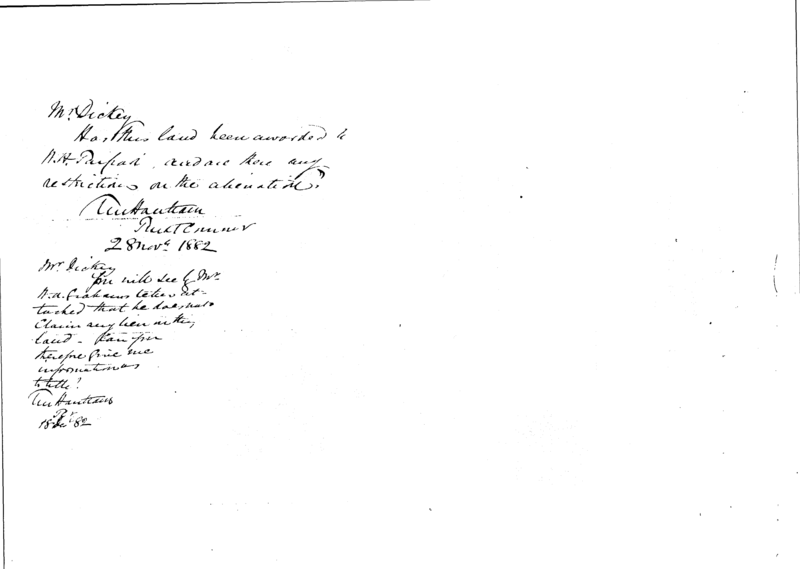 Mr. Dickey
Has this land been awarded to
W.H. and are there any
restrictions on the alienation?
Trust Commr
28 Novr 1882
Mr. Dickey
You will see by Mr.
W.A. Grahams letter at-
tached that he does not
Claim any lien on the
land - Can you
therefore give me
information as
to title?
18 Dec 82